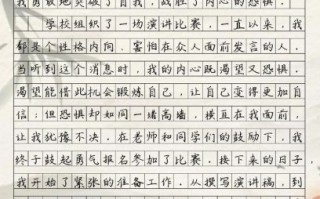 我勇敢地突破了自我，战胜了内心的恐惧。
学校组织了一场演讲比赛，一直以来，我
都是个性格内向、害怕在众人面前发言的人，
当听到这个消息时，我的内心既渴望又恐惧，
渴望能借此机会锻炼自己，让自己变得更加自
信；但恐惧却如同一堵高墙，横亘在我面前，
让我犹豫不决，在老师和同学们的鼓励下，我
终于鼓起勇气报名参加了比赛，接下来的日子
我开始了紧张的准备工作，从撰写演讲稿，到